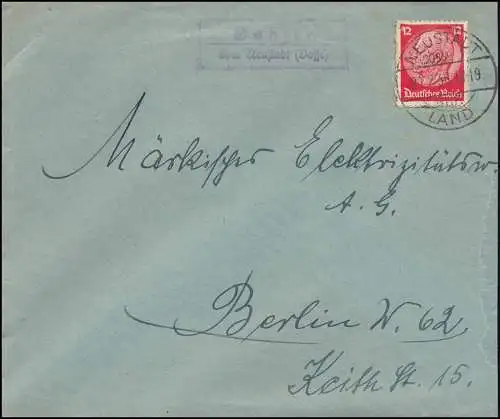 über Neustadt (Dosse)
12 12
Deutsches Reich
NEUSTADT
LAND
Märkisches Elektrizitätsw.
A. G.
Berlin W. 62
Keith St. 15.